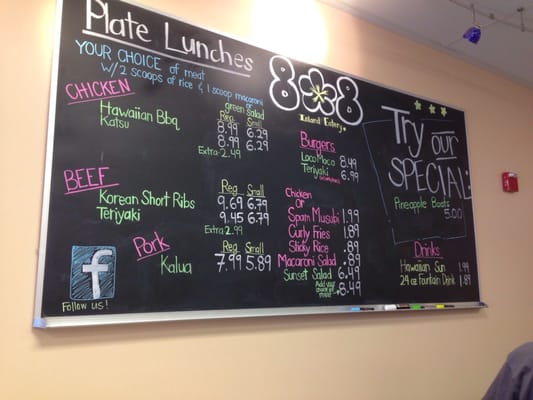 Plate Lunches
YOUR CHOICE of meat
w/ 2 scoops of rice & 1 scoop macaroni
or
green salad
CHICKEN
Reg Small
Hawaiian Bbq 8.99 6.29
Katsu 8.99 6.29
Extra 2.49
BEEF
Reg Small
Korean Short Ribs 9.69 6.79
Teriyaki 9.45 6.79
Extra 2.99
Pork
Reg Small
Kalua 7.99 5.89
f
Follow us!
808
Island Eatery
Burgers
Loco Moco 8.49
Teriyaki 6.99
CHICKEN or
Spam Musubi 1.99
Curly Fries 1.89
Sticky Rice .89
Macaroni Salad .89
Sunset Salad 6.49
Add your
choice of
meat 8.49
Try our
SPECIAL
Pineapple Boats
5.00
Drinks
Hawaiian Sun 1.99
24 oz Fountain Drink 1.89